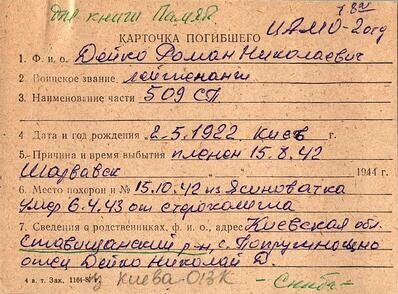 для книги Памят.
ЦАМО-2 отд
КАРТОЧКА ПОГИБШЕГО
1. Ф. и о. Дейко Роман Николаевич
2. Воинское звание лейтенант
3. Наименование части 509 СП
4 Дата и год рождения 2.5.1922 Киев г.
5. Причина и время выбытия пленен 15.8.42
Шарвавск 1944 г.
6. Место похорон и № 15.10.42 из Ясиноватка
умер 6.4.43 от
7. Сведения о родственниках, ф. и о., адрес Киевская обл.
Ставищанский р-н, с.
отец Дейко Николай Д.
4 в. т. Зак.
из Киева-ОВК